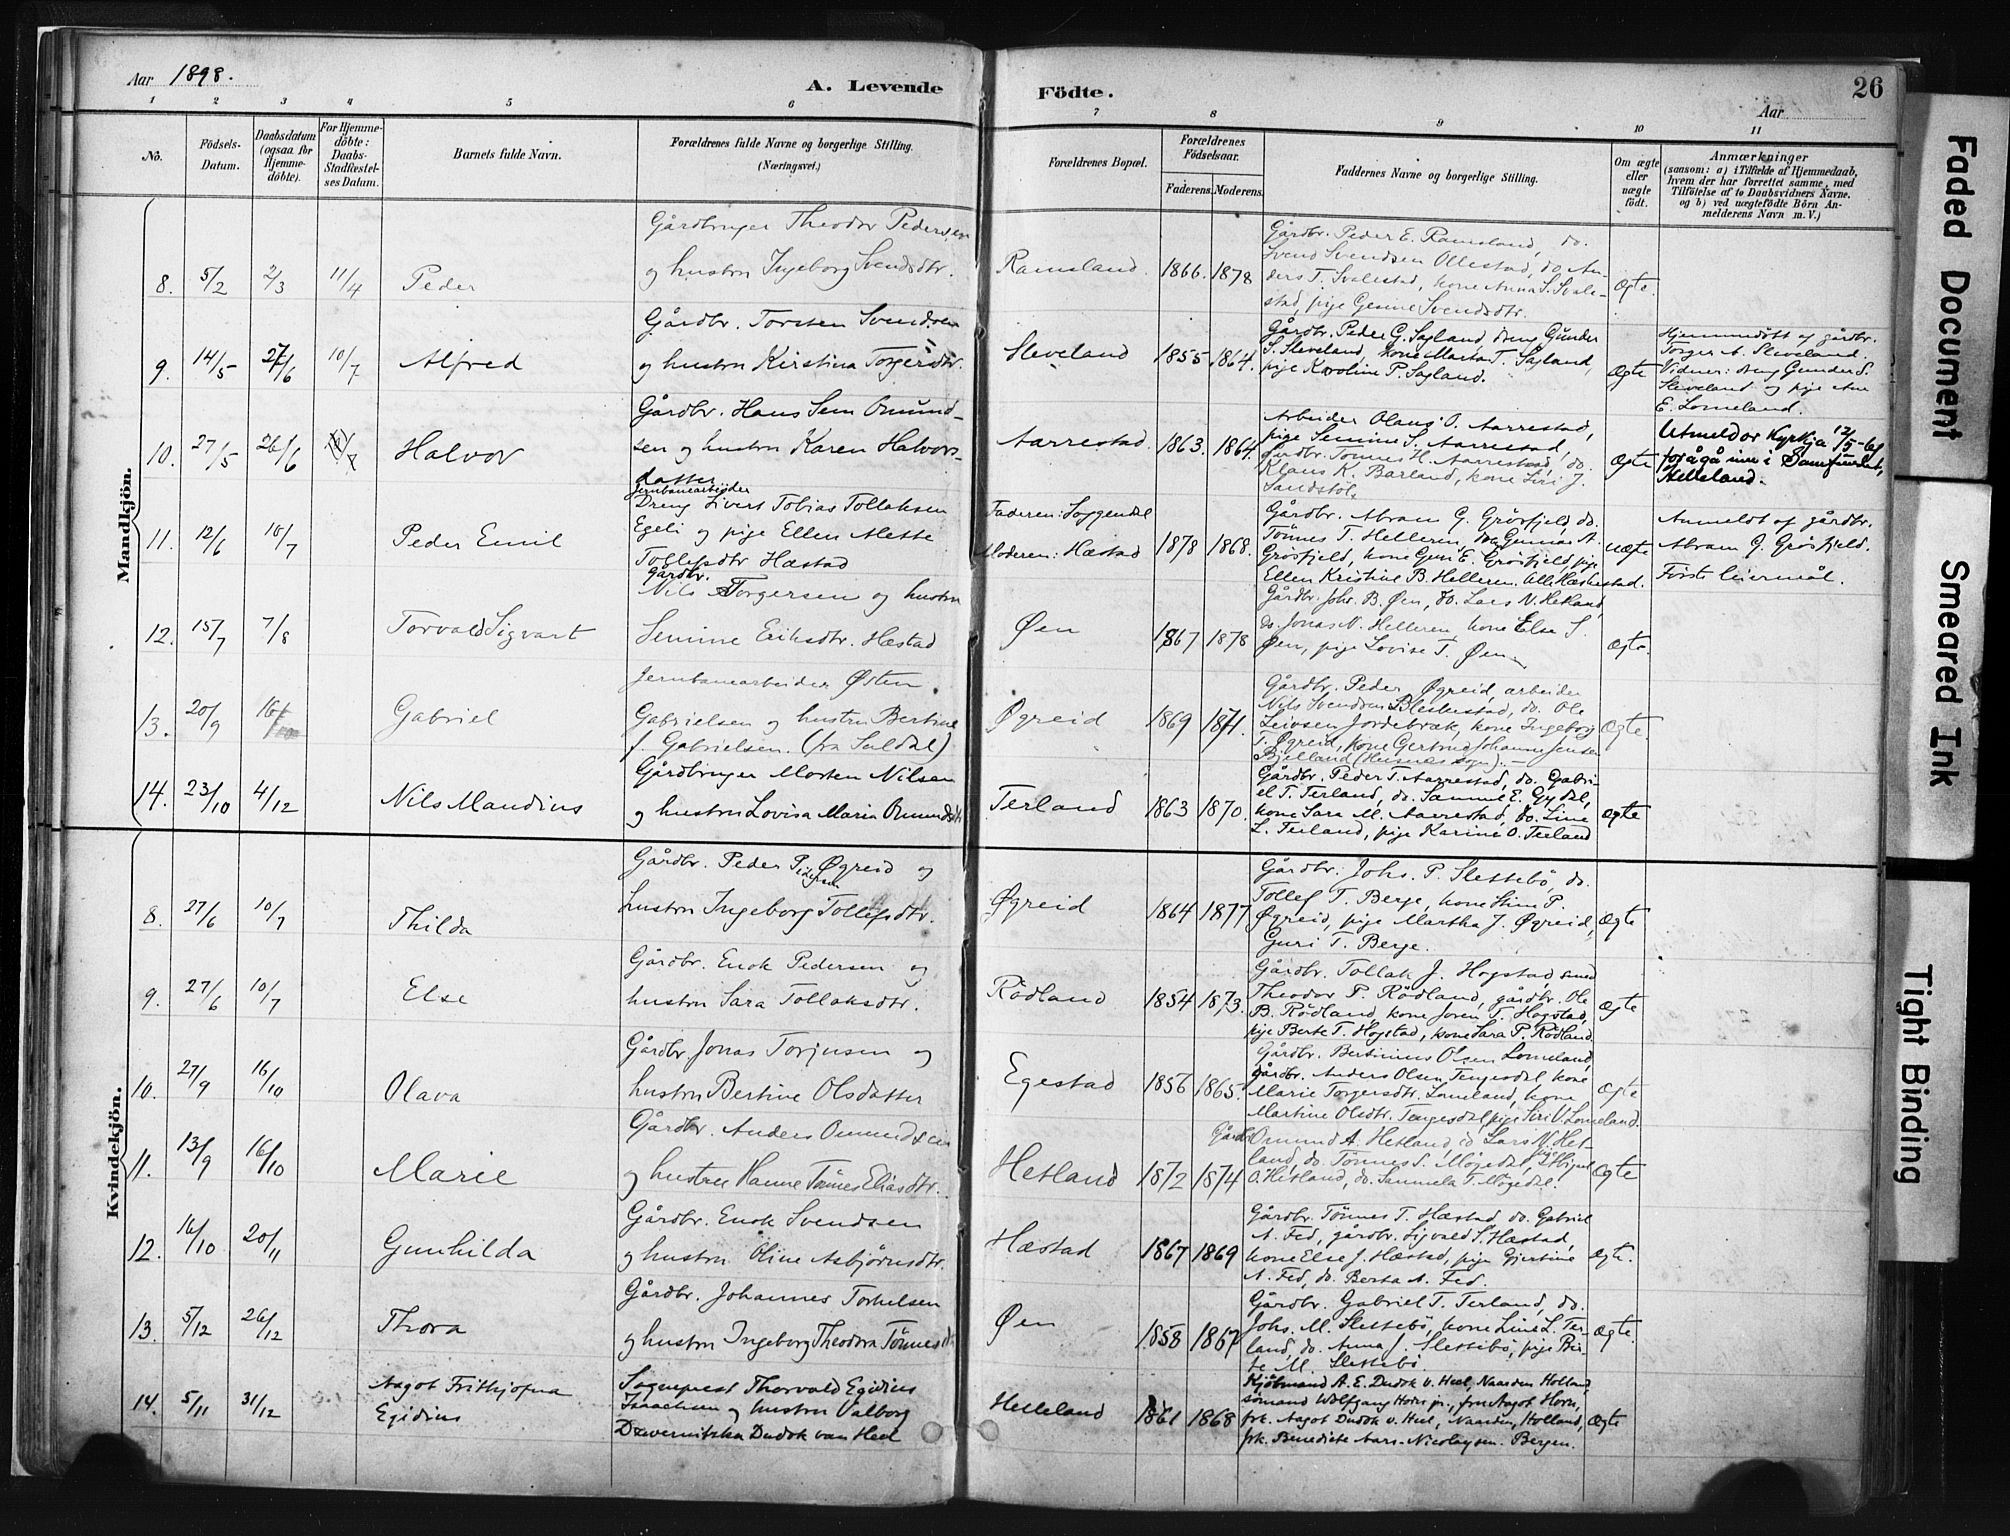 Aar 1898.
A. Levende
Födte.
Aar
26
1 2 3 4 5 6 7 8 9 10 11
No.
Födsels-Datum.
Daabsdatum (ogsaa for Hjemme-döbte).
For Hjemme-döbte: Daabs-Stadfestel-ses Datum.
Barnets fulde Navn.
Forældrenes fulde Navne og borgerlige Stilling. (Næringsvei.)
Forældrenes Bopæl.
Forældrenes Födselsaar.
Faderens. Moderens.
Faddernes Navne og borgerlige Stilling.
Om ægte eller uægte födt.
Anmærkninger
(saasom: a) i Tilfælde af Hjemmedaab,
hvem der har forrettet samme, med
Tilföielse af to Daabsvidners Navne.
og b) ved uægtefödte Börn An-
melderens Navn m. V.)
Mandkjön.
8. 5/2 2/3 11/4 Peder
Gårdbruger Theodor Pedersen
og hustru Ingeborg Svendsdtr.
Ramsland. 1866. 1878
Gårdbr. Peder E. Ramsland, do.
Svend Svendsen Ollestad, do. An-
ders T. Svalestad, kone Anna S. Svale-
stad, pije Gemine Svendsdtr.
Ægte.
9. 14/5 27/6 10/7 Alfred
Gårdbr. Torsten Svendsen
og hustru Kirstina Torgersdtr.
Sleveland 1855 1864.
Gårdbr. Peder G. Sagland, dreng Gunder
S. Sleveland, kone Marta T. Sagland,
pije Karoline P. Sagland.
Ægte
Hjemmedöbt af gårdbr.
Torger A. Sleveland.
Vidner: dreng Gunder S.
Sleveland og pije Ane
E. Lomeland.
10. 27/5 26/6 Halvor
Gårdbr. Hans Sem Omund-
sen og hustru Karen Halvors-
datter
Aarrestad 1863. 1864.
Arbeider Olaus O. Aarrestad,
pije Semine S. Aarrestad,
Gårdbr. Tönnes H. Aarrestad, do.
Klaus K. Barland, kone Siri J.
Sandstöl.
Ægte
Utmeld or Kyrkja 12/5-61
for å gå inn i Samfundet,
Helleland.
11. 12/6 10/7 Peder Emil
Jernbanearbeider
Dreng Sivert Tobias Tollaksen
Egeli og pije Ellen Mette
Tollefsdtr Hæstad
Faderen: Soggendal
Moderen: Hæstad 1878 1868.
Gårdbr. Abram G. Grösfjeld, do.
Tönnes T. Helleren, do. Gunnar A.
Grösfjeld, kone Guri E. Grösfjeld, pije
Ellen Kristine B. Helleren. Alle Heskestad.
uægte
Anmeldt af gårdbr.
Abram G. Grösfjeld.
Förste leiermål.
12. 15/7 7/8 Torvald Sigvart
Gårdbr.
Nils Torgersen og hustru
Semine Eriksdtr. Hæstad
Øen 1867 1878
Gårdbr. Johs. B. Øen, do. Lars N. Hetland,
do. Jonas N. Helleren, kone Else S.
Øen, pije Lovise T. Øen
Ægte.
13. 20/9 16/10 Gabriel
Jernbanearbeider Østen
Gabrielsen og hustru Bertine
f. Gabrielsen. (fra Suldal)
Øgreid 1869 1871.
Gårdbr. Peder Øgreid, arbeider
Nils Svendsen Bleskestad, do. Ole
Leivsen Jordebræk, kone Ingeborg
T. Øgreid, kone Gertrud Johanne Jensen
Bjelland (Heines sogn). —
Ægte.
14. 23/10 4/12 Nils Maudius
Gårdbruger Morten Nilsen
og hustru Lovisa Maria Omundsdtr
Terland 1863 1870.
Gårdbr. Peder T. Aarrestad, do. Gabri-
el T. Terland, do. Samuel E. Gydal,
kone Sara M. Aarrestad, do. Line
L. Terland, pije Karine O. Terland
Ægte
Kvindekjön.
8. 27/6 10/7 Thilda
Gårdbr. Peder Pedersen Øgreid og
hustru Ingeborg Tollefsdtr.
Øgreid 1864 1877
Gårdbr. Johs. P. Slettebö, do.
Tollef T. Berge, kone Stine P.
Øgreid, pije Martha J. Øgreid,
Guri T. Berge.
Ægte
9. 27/6 10/7 Else
Gårdbr. Enok Pedersen og
hustru Sara Tollaksdtr.
Rödland 1854 1873.
Gårdbr. Tollak J. Hogstad, smed
Theodor P. Rödland, gårdbr. Ole
B. Rödland, kone Joren T. Hogstad,
pije Berte T. Hogstad, kone Sara P. Rödland.
Ægte
10. 27/9 16/10 Olava
Gårdbr. Jonas Torjusen og
hustru Bertine Olsdatter
Egestad 1856 1865.
Gårdbr. Bertinius Olsen Lomeland,
gårdbr. Anders Olsen Tengesdal, kone
Marie Torgersdtr. Lomeland, kone
Martine Olsdtr. Tengesdal, pije Siri V. Lomeland.
Ægte
11. 13/9 16/10 Marie
Gårdbr. Anders Omundsen
og hustru Hanne Tönnes Eliasdtr.
Hetland 1872 1874
Gårdbr. Omund A. Hetland, do Lars N. Het-
land, do. Tönnes S. Mögedal,
O. Hetland, do. Samuela T. Mögedal.
Ægte
12. 16/10 20/11 Gunhilda
Gårdbr. Enok Svendsen
og hustru Oline Asbjörnsdtr.
Hæstad 1867 1869
Gårdbr. Tönnes T. Hæstad, do. Gabriel
A. Fed, gårdbr. Sigvald S. Hæstad,
kone Else J. Hæstad, pije Gjertine
A. Fed, do. Berta A. Fed.
Ægte.
13. 5/12 26/12 Thora
Gårdbr. Johannes Torkelsen
og hustru Ingeborg Theodora Tönnesdtr
Øen 1858 1867
Gårdbr. Gabriel T. Terland, do.
Johs. M. Slettebö, kone Line L. Ter-
land, do. Anna J. Slettebö, pije Bir-
te M. Slettebö
Ægte.
14. 5/11 31/12 Aagot Frithjofna
Egidius
Sogneprest Thorvald Egidius
Isaachsen og hustru Valborg
Dzwernitzka Dudok van Heel
Helleland 1861 1868
Kjöbmand A. E. Dudok v. Heel, Naarden Holland,
sömand Wolfgang Horn jr., fru Aagot Horn,
frk. Aagot Dudok v. Heel, Naarden, Holland,
frk. Benedicte Aars-Nicolaysen. Bergen.
Ægte
Faded Document
Smeared Ink
Tight Binding